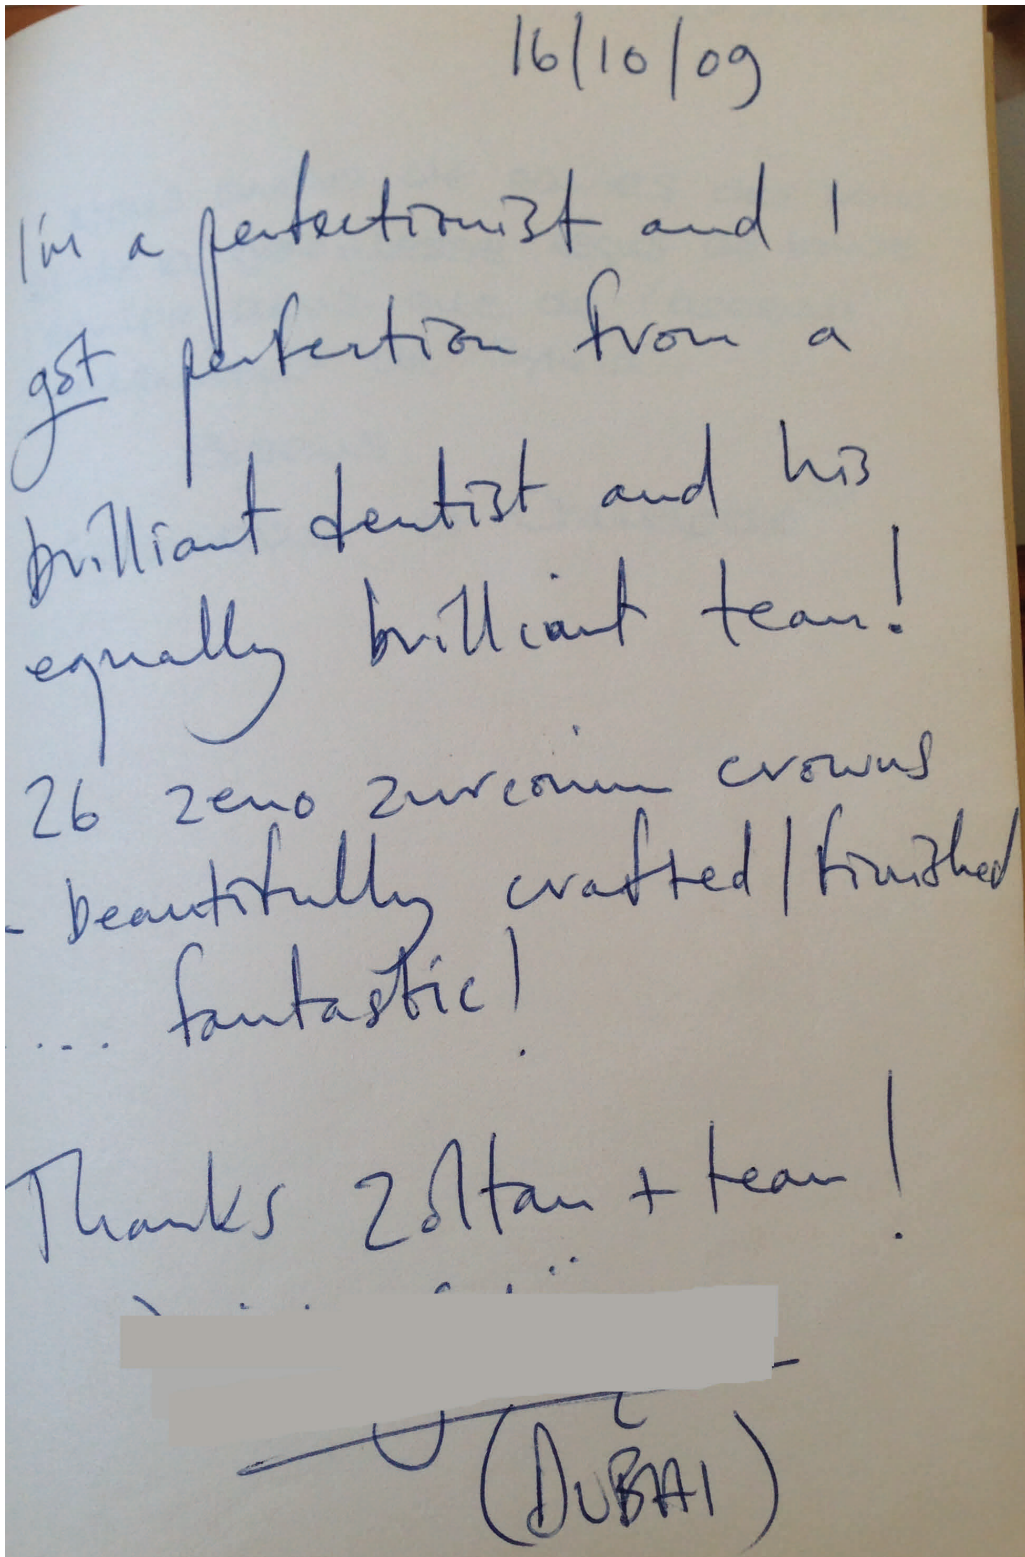 16/10/09
I'm a perfectionist and I
got perfection from a
brilliant dentist and his
equally brilliant team!
26 zeno zurconium crowns
- beautifully crafted/finished
.... fantastic!
Thanks Zoltan + team!
(DUBAI)